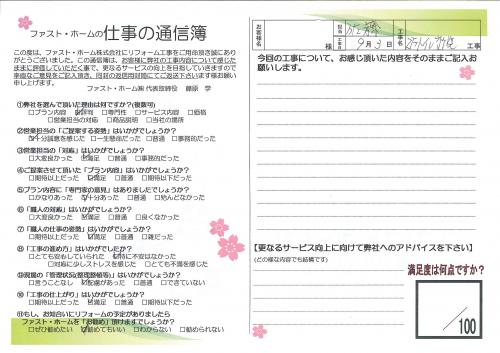 ファスト・ホームの仕事の通信簿
この度は、ファスト・ホーム株式会社にリフォーム工事をご用命頂き誠にあり
がとうございました。この通信簿は、お客様に弊社の工事内容について感じた
まま評価していただく事で、更なるサービスの向上を目指していきますので
率直なご意見をご記入頂き、同封の返信用封筒にてご返送下さいます様お願い
申し上げます。
ファスト・ホーム㈱ 代表取締役
①弊社を選んで頂いた理由は何ですか?(複数可)
□プラン内容 □評判 □専門性 □サービス内容 □価格
□営業担当の対応 □商品説明 □当社の信用
②営業担当の「ご提案する姿勢」はいかがでしょうか?
□十分誠意を感じた □一生懸命だった □普通 □事務的だった
③営業担当の「対応」はいかがでしょうか?
□大変良かった □満足 □普通 □事務的だった
④ご提案させて頂いた「プラン内容」はいかがでしょうか?
□期待以上だった □満足 □普通 □期待以下だった
⑤プラン内容に「専門家の意見」はありましたでしょうか?
□かなりあった □十分あった □普通 □殆んどなかった
⑥「職人の対応」はいかがでしょうか?
□大変良かった □満足 □普通 □良くなかった
⑦「職人の仕事の姿勢」はいかがでしょうか?
□期待以上だった □満足 □普通 □雑だった
⑧「工事の進め方」はいかがでしたか?
□とても安心していられた □特に不安はなかった
□対応に少しストレスを感じた □とても不満を感じた
⑨現場の「管理状況(整理整頓等)」はいかがでしょうか?
□言うことなし □配慮があった □普通 □できていない
⑩「工事の仕上がり」はいかがでしょうか?
□期待以上だった □満足 □普通 □雑だった
⑪もし、お知合いにリフォームの予定がありましたら
ファスト・ホームを「お勧め」頂けますでしょうか?
□ぜひ勧めたい □勧めてもいい □わからない □勧められない
お客様名
様
担当
工事日
9月3日
工事名
工事
今回の工事について、お感じ頂いた内容をそのままご記入お
願いします。
【更なるサービス向上に向けて弊社へのアドバイスを下さい】
(どの様な内容でも結構です)
満足度は何点ですか?
/100